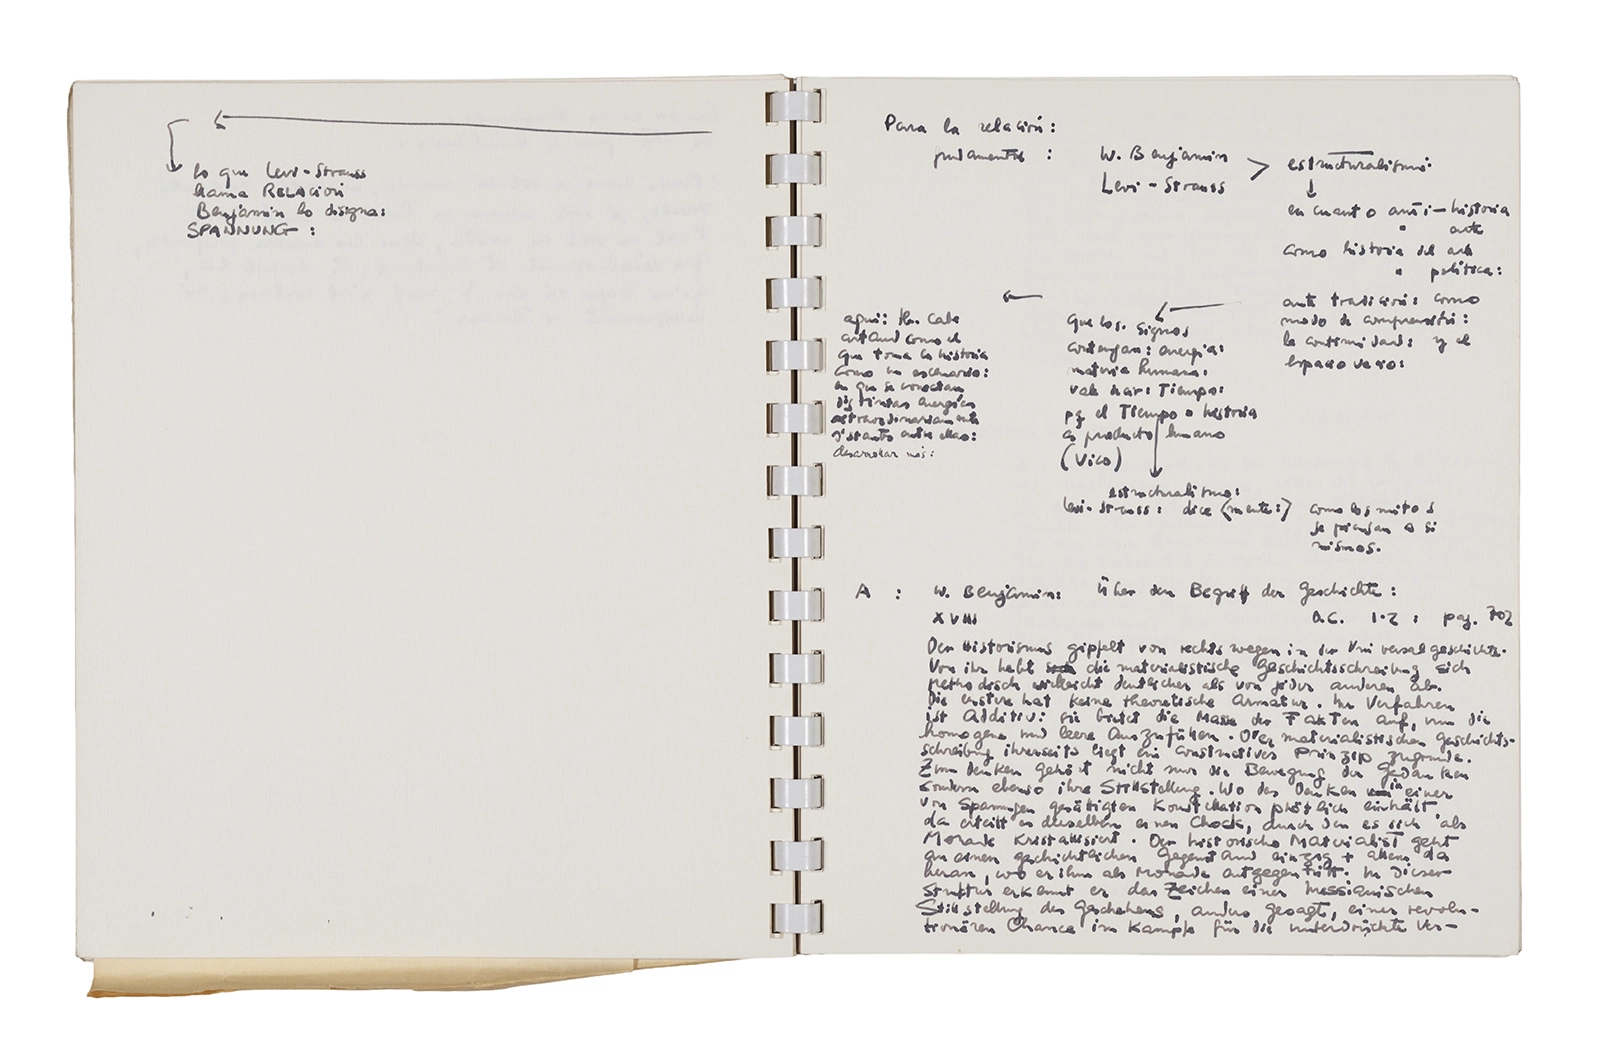 lo que Levi-Strauss
llama RELACION
Benjamin lo designa:
SPANNUNG :
Para la relación:
fundamentos :
W. Benjamin
Levi-Strauss
> estructuralismo:
en cuanto anti-historia
" arte
como historia del arte
" política:
ante tradición: como
modo de comprensión:
la continuidad: y el
espacio vacio:
que los signos
contengan: energia:
materia humana:
vale decir: Tiempo:
pq el Tiempo o historia
es producto humano
(Vico)
aqui: Mr. Cabe
artaud como el
que toma la historia
como un escenario:
en que se conectan
distintas energías
extraordinariamente
distantes entre ellas:
desarrollar más:
estructuralismo:
Levi-Strauss: dice (mente:)
como los mitos
se piensan a si
mismos.
A : W. Benjamin: Über den Begriff der Geschichte:
XVIII O.C. 1·2 : pag. 702
Der Historismus gipfelt von rechtswegen in der Universalgeschichte.
Von ihr hebt die materialistische Geschichtsschreibung sich
methodisch vielleicht deutlicher als von jeder anderen ab.
Die erstere hat keine theoretische Armatur. Ihr Verfahren
ist additiv: sie bietet die Masse der Fakten auf, um die
homogene und leere Auszufüllen. Der materialistischen Geschichts-
schreibung ihrerseits liegt ein constructives Prinzip zugrunde.
Zum denken gehört nicht nur die Bewegung der Gedanken
sondern ebenso ihre Stillstellung. Wo das Denken in einer
von Spannungen gesättigten Konstellation plötzlich einhält
da erteilt es derselben einen Chock, durch den es sich als
Monade Kristallisiert. Der historische Materialist geht
an einen geschichtlichen Gegenstand einzig + allein da
heran, wo er ihm als Monade entgegentritt. In dieser
Struktur erkennt er das Zeichen einer messianischen
Stillstellung des Geschehens, anders gesagt, einer revolu-
tionären Chance im Kampfe für die unterdrückte Ver-